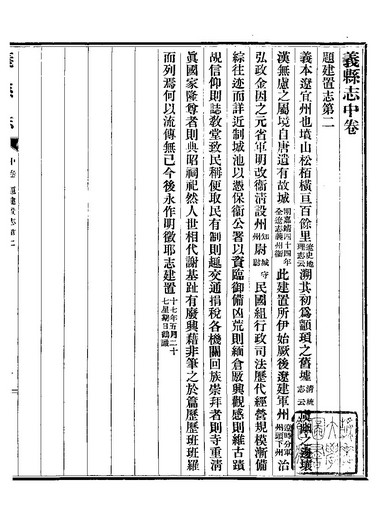 義縣志中卷
題建置志第二
義本遼宜州也墳山松栢橫亘百餘里遼史地理志云溯其初爲顓頊之舊墟清統志云虞幽之邊壤
漢無慮之屬境自唐遺有故城明嘉靖四十四年全遼志義州衛此建置所伊始厥後遼建軍州遼時分軍州頭下州治
弘政金因之元省軍明改衛清設州知州尉城守尉民國組行政司法歷代經營規模漸備
綜往迹而詳近制城池以憑保衛公署以資臨御備凶荒則緬倉厫興觀感則維古蹟
覘信仰則誌敎堂致民稱便取民有制則趣交通捐稅各機關回族崇拜者則寺重清
眞國家隆尊者則典昭祠祀然人世相代謝基趾有廢興藉非筆之於篇歷歷班班羅
而列焉何以流傳無已今後永作明徵耶志建置十七年五月二十七星期日鶴識
義縣志
中卷 建置志二